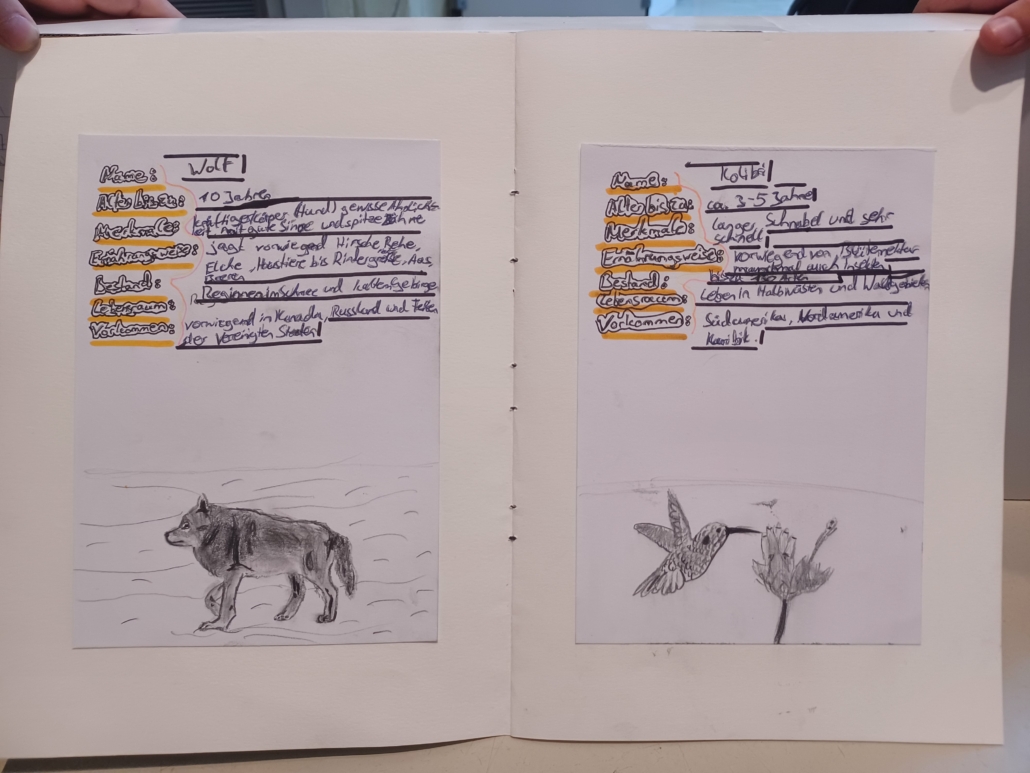 Name: Wolf
Alter bis zu: 10 Jahren
kräftiger Körper (Hund) gewisse
Merkmale: gute Sinne und spitze Zähne
Ernährungsweise: jagt vorwiegend Hirsche, Rehe,
Elche, Haustiere bis Rinder, Aas,
Bestand:
im Schnee und
Lebensraum:
vorwiegend in Kanada, Russland und Teilen
Vorkommen: der Vereinigten Staaten
Name: Kolibri
Alter bis zu: ca. 3-5 Jahre
Merkmale: langer Schnabel und sehr
schnell
Ernährungsweise: vorwiegend von Blütennektar
manchmal auch Insekten
Bestand: Arten
Lebensraum: Leben in Halbwüsten und
Vorkommen: Südamerika, Nordamerika und
Karibik.